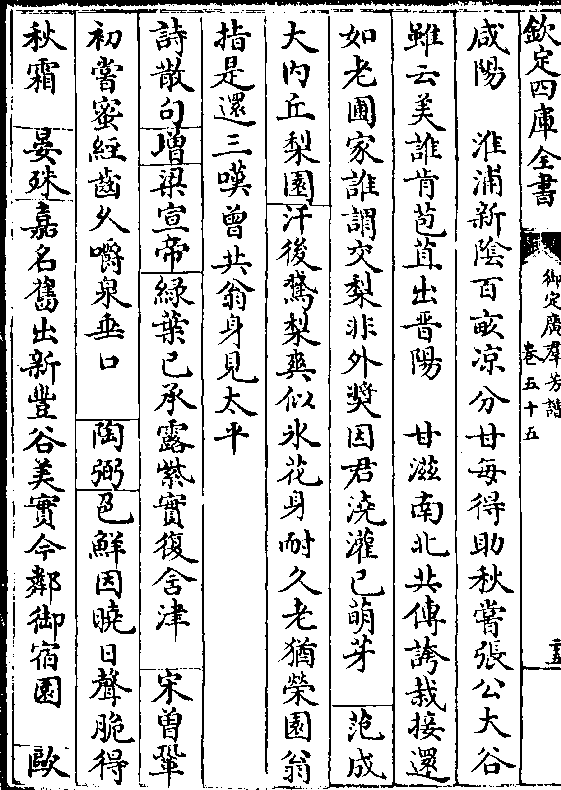 欽定四庫全書
御定廣羣芳譜
卷五十五
咸陽　淮浦新陰百畝凉分甘每得助秋嘗張公大谷
雖云美誰肯苞苴出晋陽　甘滋南北共傳誇栽接還
如老圃家誰謂交梨非外奬因君澆灌已萌芽　范成
大内丘梨園汗後鵞梨爽似氷花身耐久老猶榮園翁
指是還三嘆曾共翁身見太平
詩散句增梁宣帝緑葉已承露紫實復含津　宋曾鞏
初嘗蜜經齒久嚼泉垂口　陶弼色鮮因曉日聲脆得
秋霜　晏殊嘉名舊出新豐谷美實今鄰御宿園　歐